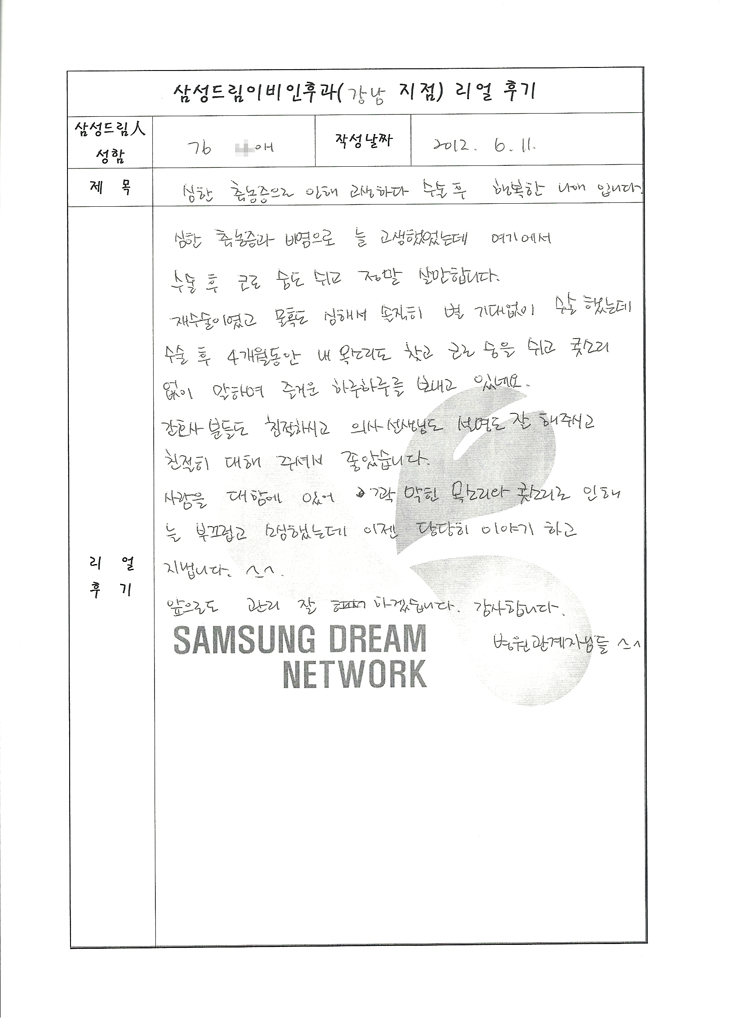 삼성드림이비인후과(강남 지점) 리얼 후기
삼성드림人
성함
애
작성날짜
2012. 6. 11.
제 목
심한 축농증으로 인해 고생하다 수술 후 행복한 나애 입니다.
심한 축농증과 비염으로 늘 고생했었는데 여기에서
수술 후 코로 숨도 쉬고 정말 살만합니다.
재수술이였고 물혹도 심해서 솔직히 별 기대없이 수술 했는데
수술 후 4개월동안 내 목소리도 찾고 코로 숨을 쉬고 콧소리
없이 말하며 즐거운 하루하루를 보내고 있네요.
간호사 분들도 친절하시고 의사 선생님도 설명도 잘 해주시고
친절히 대해 주셔서 좋았습니다.
사람을 대함에 있어 꽉 막힌 목소리와 콧소리로 인해
늘 부끄럽고 소심했는데 이젠 당당히 이야기 하고
지냅니다. ^^.
앞으로도 관리 잘 하겠습니다. 감사합니다.
병원관계자님들 ^^
리 얼
후 기
SAMSUNG DREAM
NETWORK